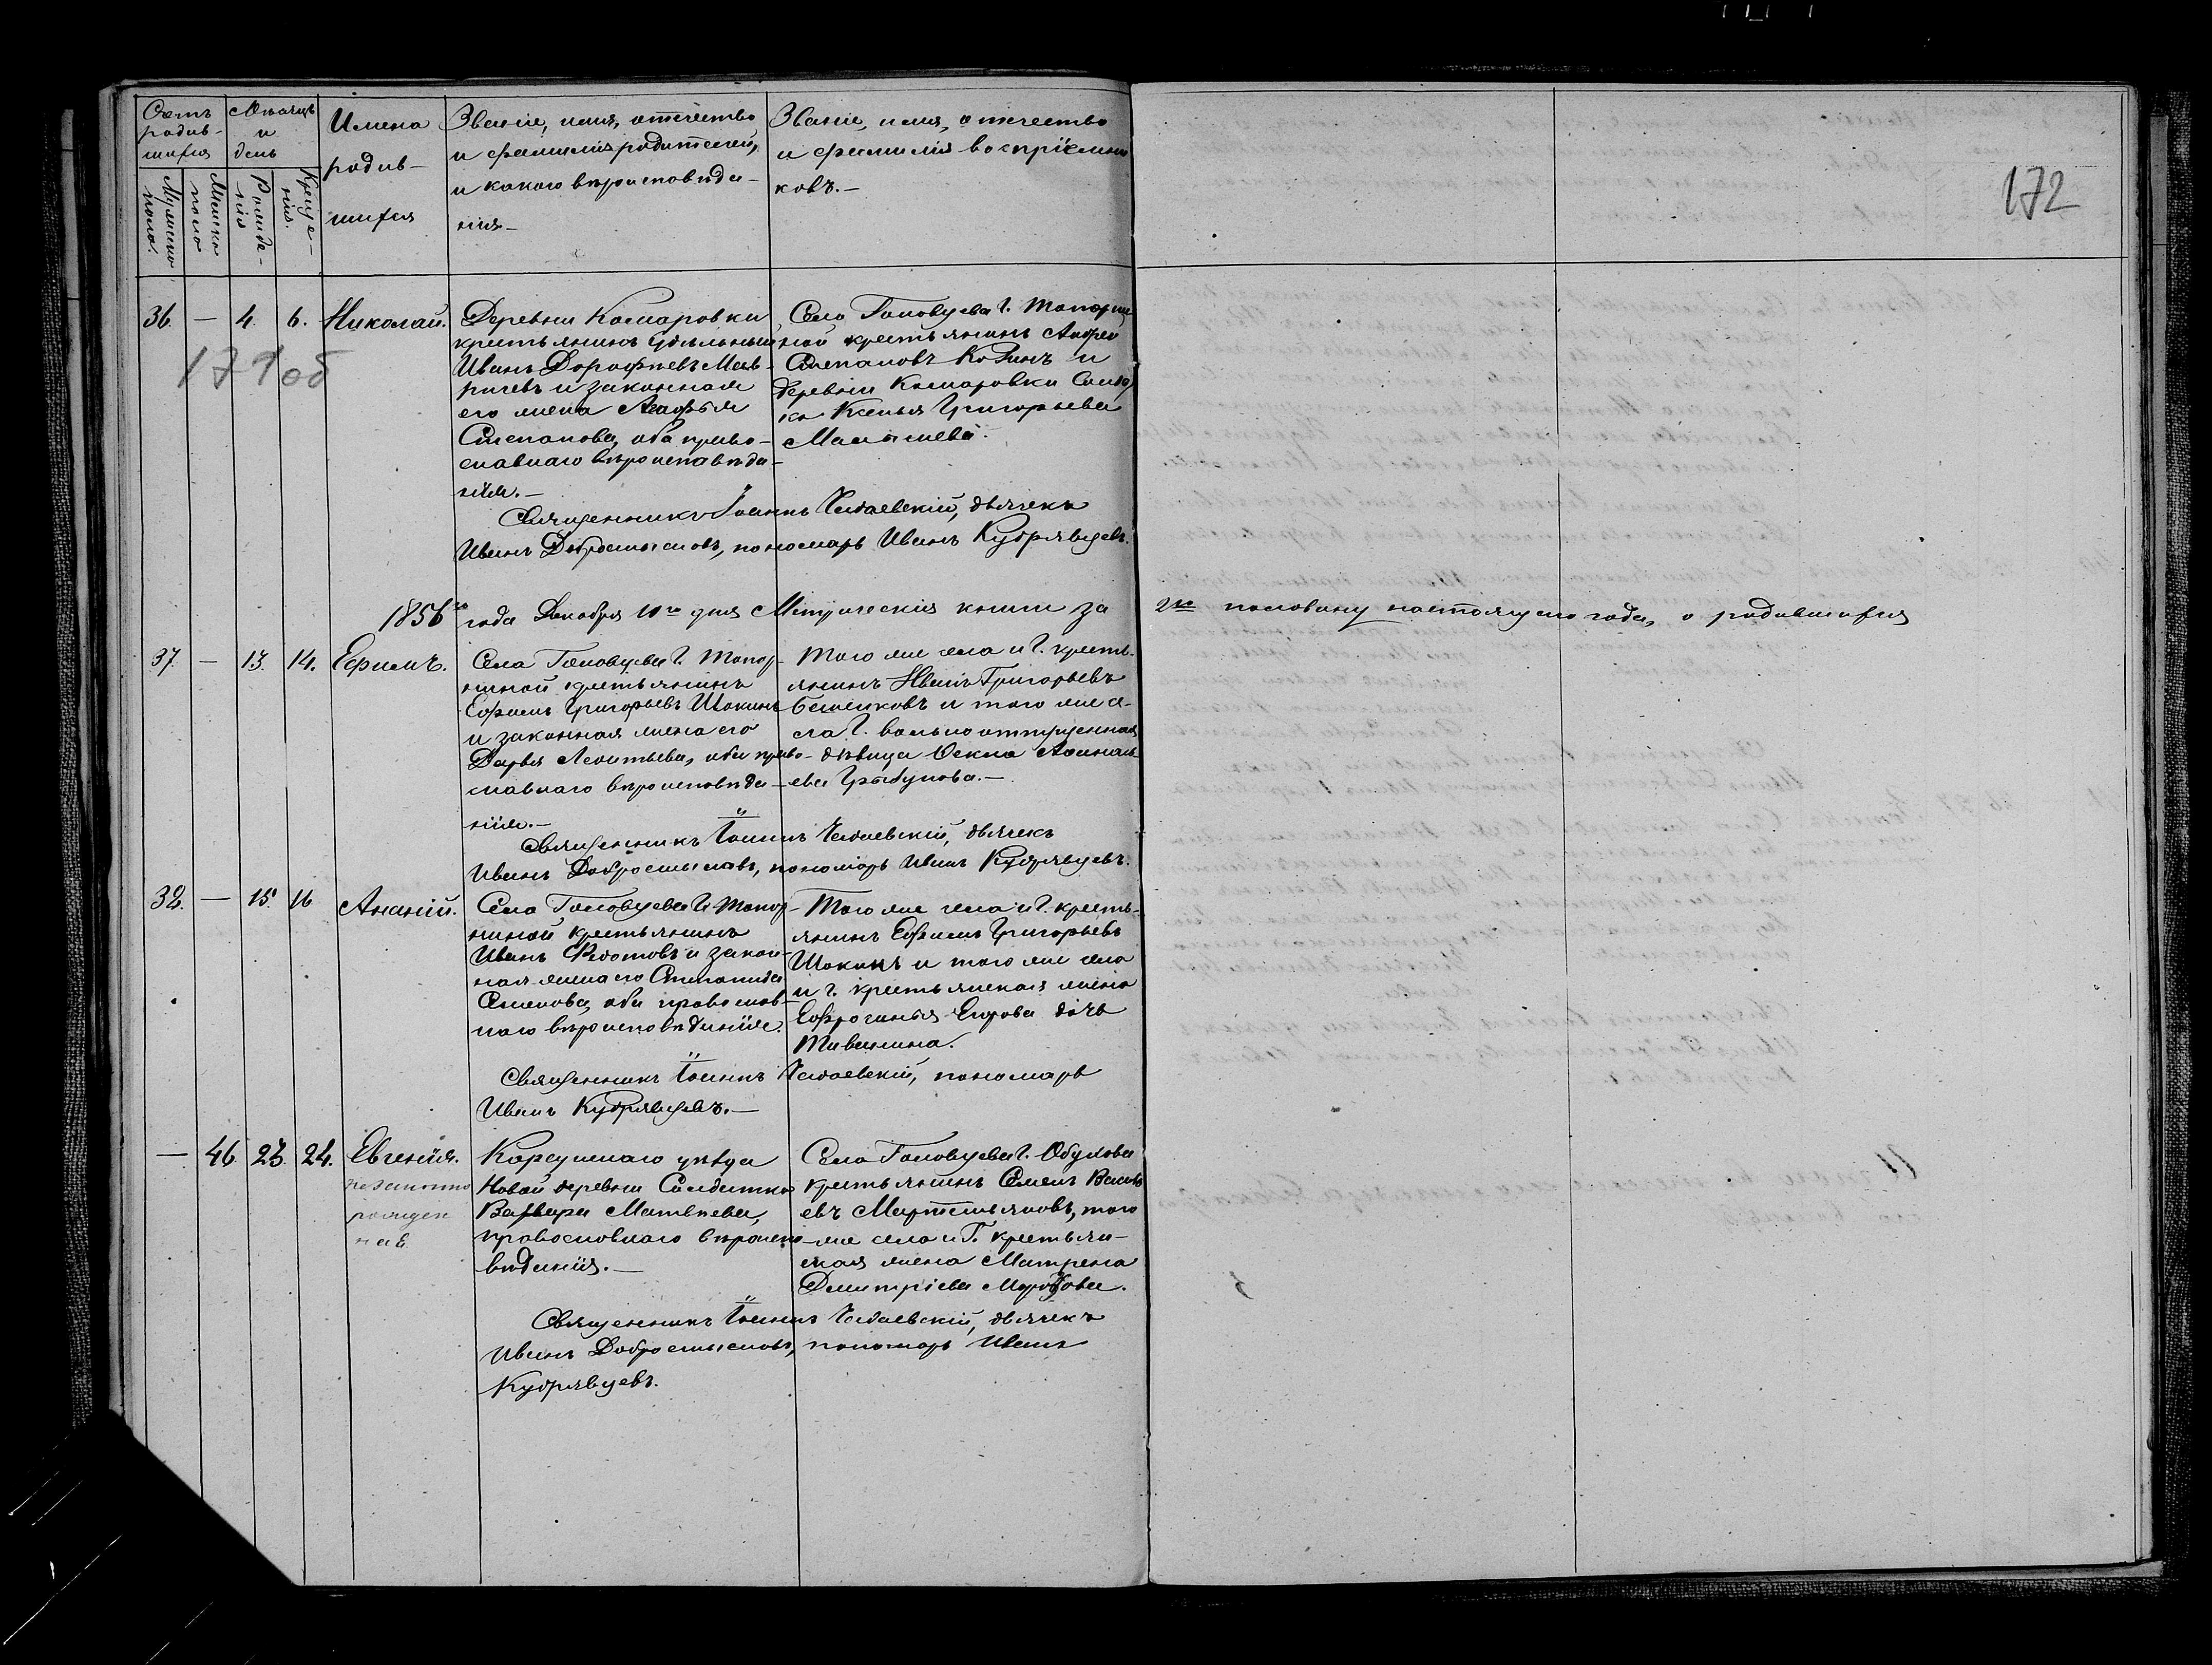 Счетъ родив-шихся
Мѣсяцъ и день
Имена родив-шихся
Званіе, имя, отчество
и фамилія родителей,
и какого вѣроисповѣда-
нія.
Званіе, имя, отчество
и фамилія воспріемни
ковъ.-
Мужеска пола.
Женска пола
Рожде-нія
Креще-нія.
172
171об
36. — 4. 6. Николай.
Деревни Комаровки
крестьянинъ удѣльный
Иванъ Дорофѣевъ
и законная
его жена Агафья
Степанова, оба право-
славнаго вѣроисповѣда-
нія.-
Села Головцева Г. Топорни
ной крестьянинъ Андрей
Степановъ Козинъ и
деревни Комаровки Солдат
ка Ксенья Григорьева
Малышева.
Священникъ Іоаннъ Чадаевскій, дьячекъ
Иванъ Добросмысловъ, пономарь Иванъ Кудрявцевъ.
1856го года Декабря 10го дня Метрическія книги за 2ю половину настоящаго года, о родившихся
37. — 13. 14. Ефимъ.
Села Головцева Г. Топор-
ниной крестьянинъ
Ефимъ Григорьевъ Шокинъ
и законная жена его
Дарья Леонтьева, оба право-
славнаго вѣроисповѣда-
нія.-
Того же села и Г. кресть-
янинъ Иванъ Григорьевъ
и того же се-
ла Г. вольноотпущенная
дѣвица Фекла Афанась-
ева
Священникъ Іоаннъ Чадаевскій, дьячекъ
Иванъ Добросмысловъ, пономарь Иванъ Кудрявцевъ.
38. — 15. 16 Ананій.
Села Головцева Г. Топор-
ниной крестьянинъ
Иванъ Ѳедотовъ и закон-
ная жена его Степанида
Семенова, оба православ-
наго вѣроисповѣданія.
Того же села и Г. кресть-
янинъ Ефимъ Григорьевъ
Шокинъ и того же села
и Г. крестьянская жена
Ефросинья Егорова дочь
Священникъ Іоаннъ Чадаевскій, пономарь
Иванъ Кудрявцевъ.—
— 46. 23. 24. Евгенія.
незаконно
рожден
ная.
Карсунскаго уѣзда
Новой деревни Солдатка
Варвара Матвѣева,
православнаго вѣроиспо-
вѣданія.—
Села Головцева Г. Обухова
крестьянинъ Семенъ Василь
евъ Мартемьяновъ, того
же села и Г. крестьян-
ская жена Матрена
Димитріева Морозова.
Священникъ Іоаннъ Чадаевскій, дьячекъ
Иванъ Добросмысловъ, пономарь Иванъ
Кудрявцевъ.